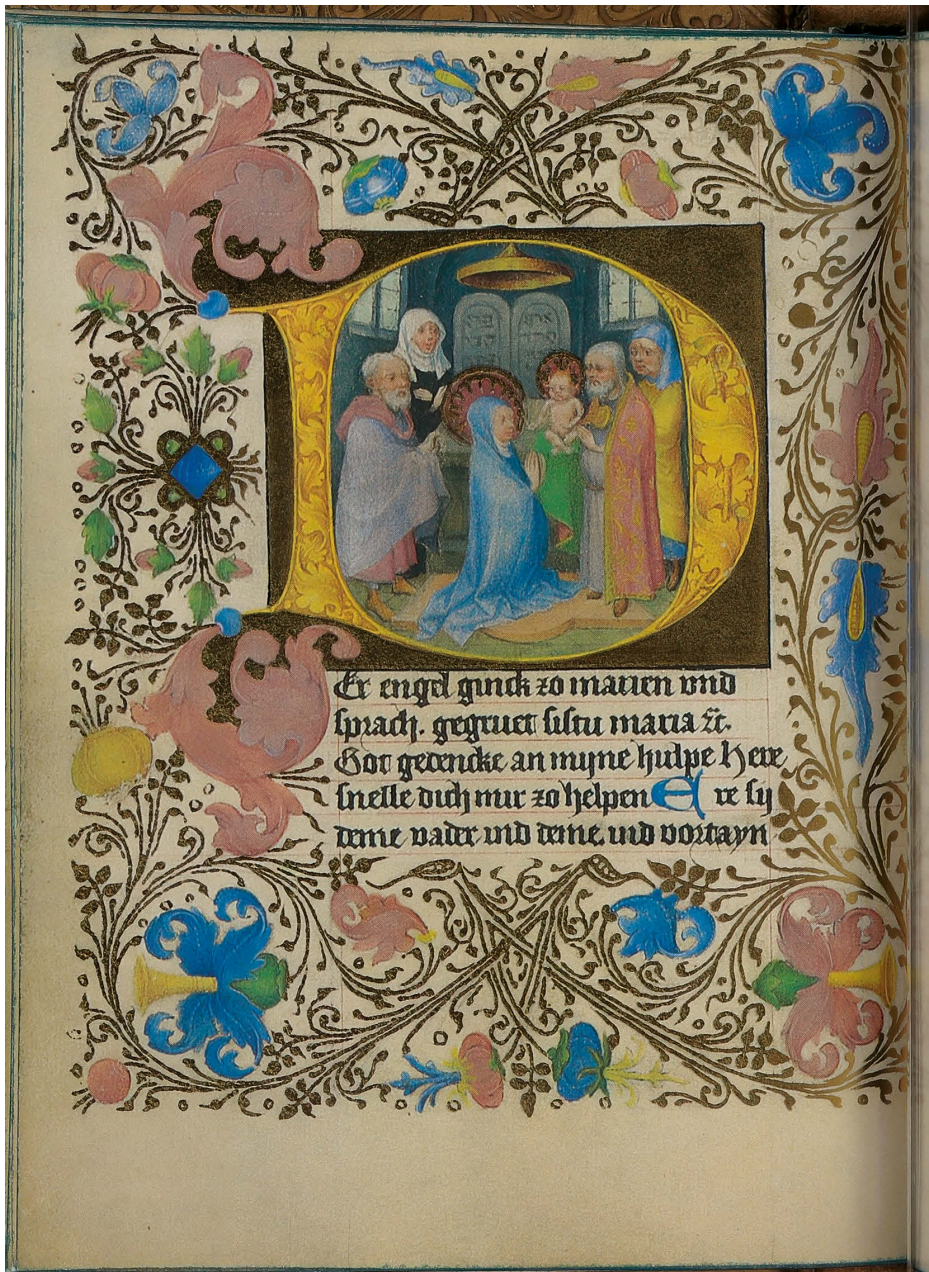 D
Er engel ginck zo marien vnd
sprach. gegruet sistu maria ⁊c̄.
Got gedencke an myne hulpe Here
snelle dich mir zo helpen E re sy
deme vader vnd deme. vnd vortayn